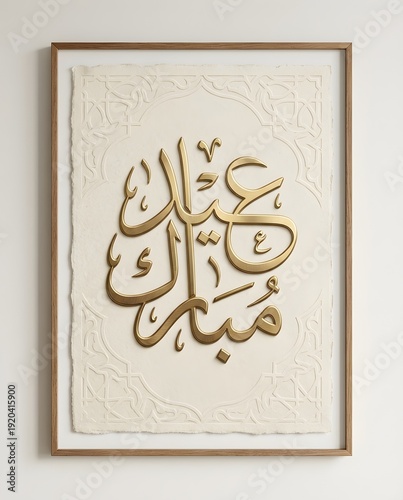 عيد
مُبارك
Adobe Stock | #1920415900